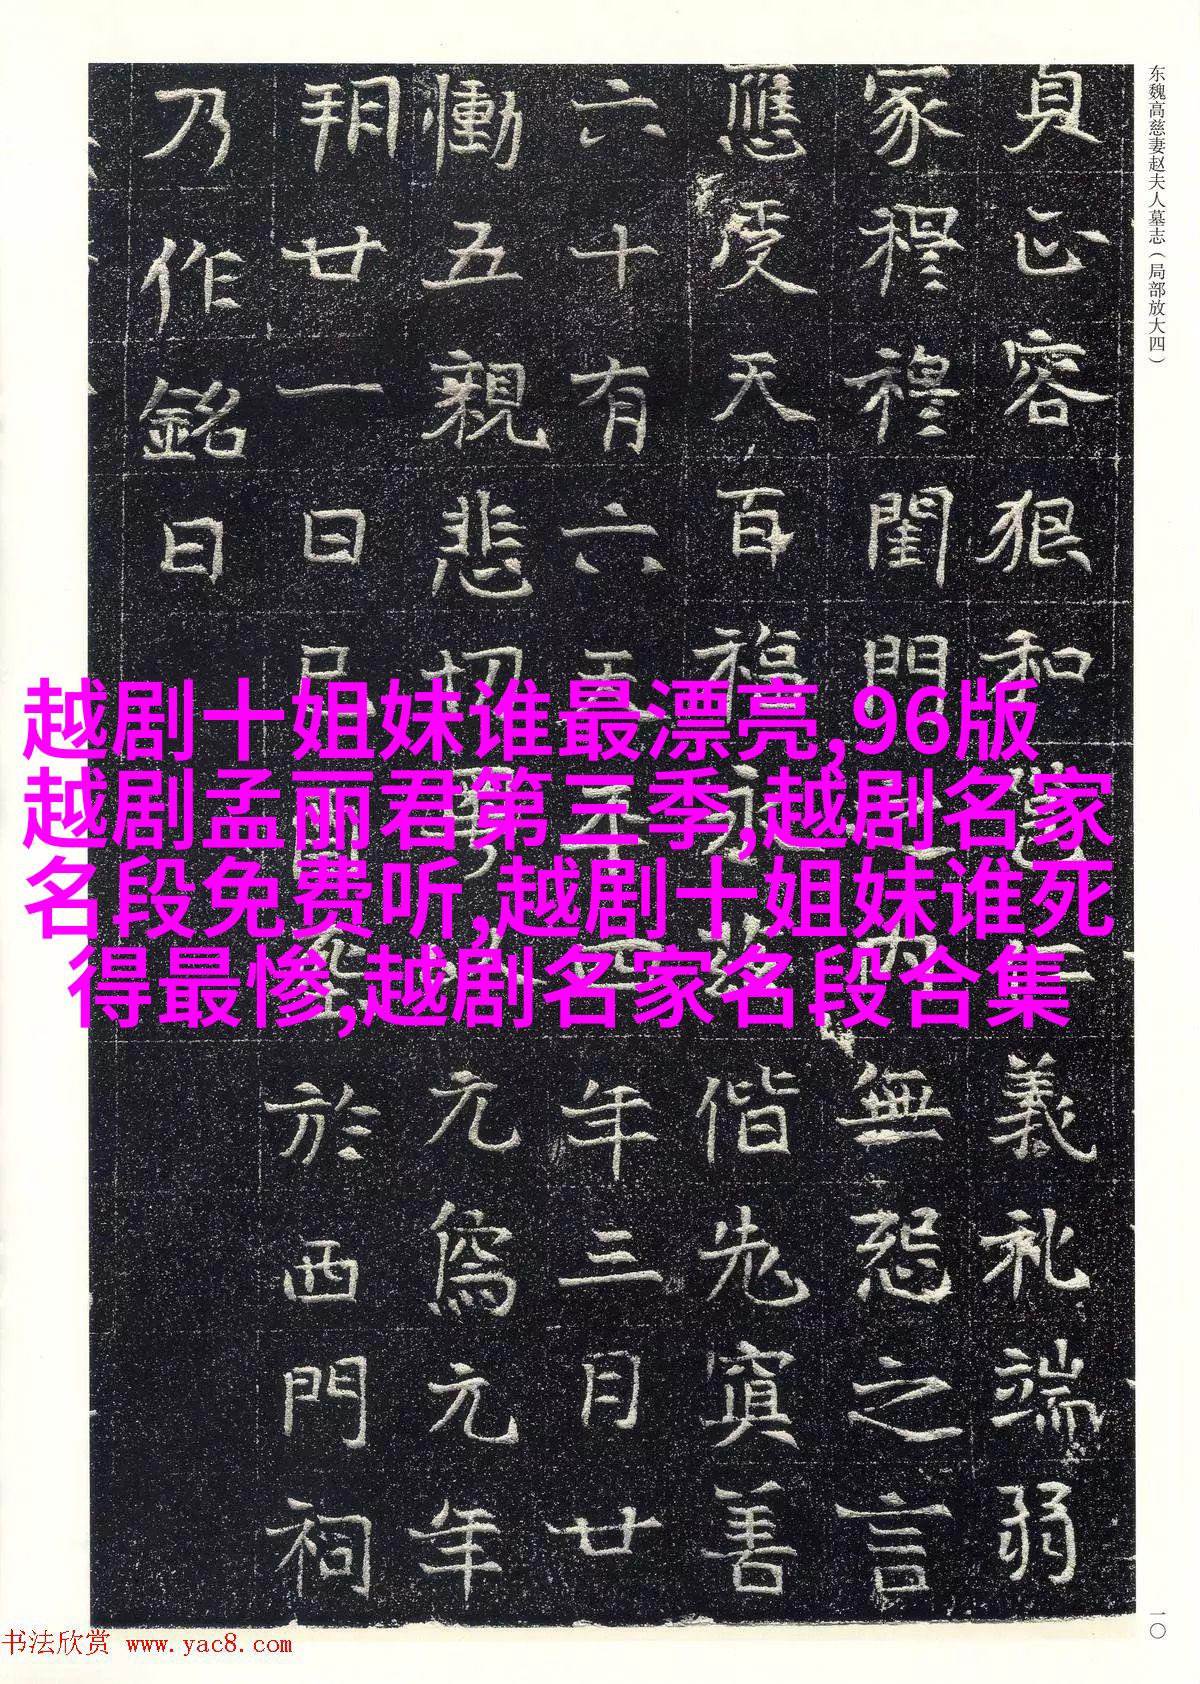 东魏高慈妻赵夫人墓志（局部放大四）
貞正容狠和仁義礼端弱
家穆穆閨門之内無怨之言
應受天百福永偕老寘善
六十有六年三月廿
慟五親悲切元寫元年
朔廿一日於西門祠
乃作銘曰
越剧十姐妹谁最漂亮,96版
越剧孟丽君第三季,越剧名家
名段免费听,越剧十姐妹谁死
得最惨,越剧名家名段合集
一〇
书法欣赏 www.yac8.com